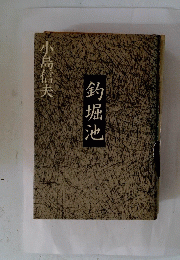 小島信夫
釣堀池